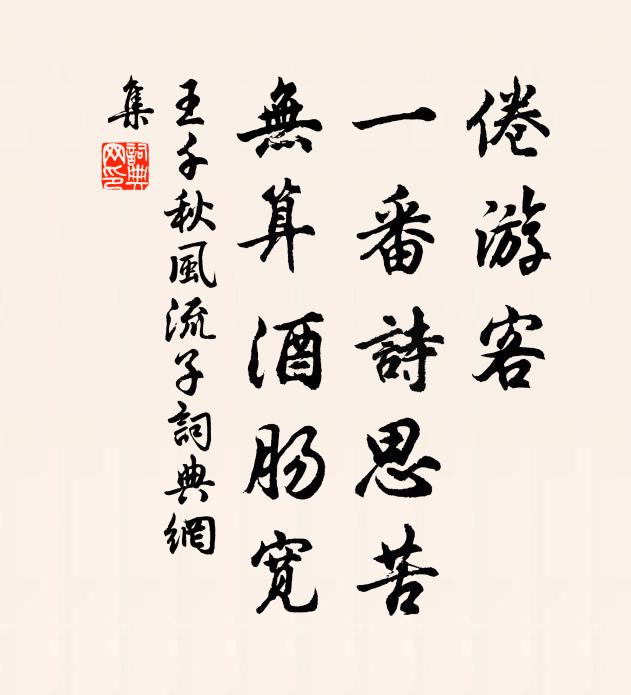 倦游客
一番詩思苦
無算酒肠寛
王千秋風流子詞典網
集
詞典
网印